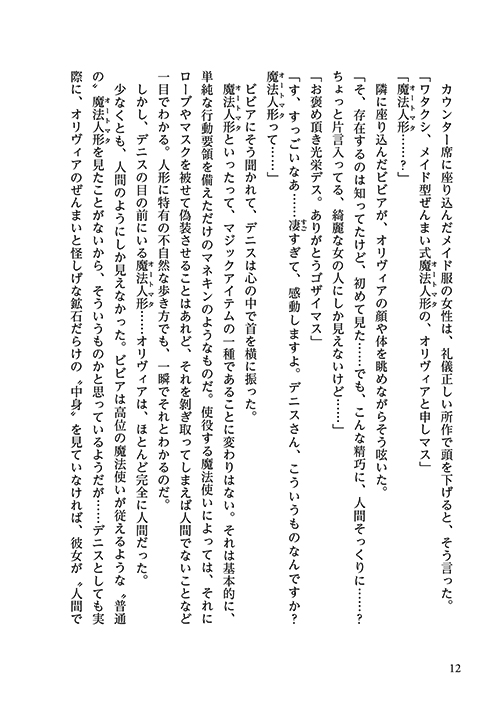 カウンター席に座り込んだメイド服の女性は、礼儀正しい所作で頭を下げると、そう言った。
「ワタクシ、メイド型ぜんまい式魔法人形オートマタの、オリヴィアと申しマス」
「魔法人形オートマタ……？」
隣に座り込んだビビアが、オリヴィアの顔や体を眺めながらそう呟いた。
「そ、存在するのは知ってたけど、初めて見た……でも、こんな精巧に、人間そっくりに……？
ちょっと片言入ってる、綺麗な女の人にしか見えないけど……」
「お褒め頂き光栄デス。ありがとうゴザイマス」
「す、すっごいなあ……凄すごすぎて、感動しますよ。デニスさん、こういうものなんですか？
魔法人形オートマタって……」
ビビアにそう聞かれて、デニスは心の中で首を横に振った。
魔法人形オートマタといったって、マジックアイテムの一種であることに変わりはない。それは基本的に、
単純な行動要領を備えただけのマネキンのようなものだ。使役する魔法使いによっては、それに
ローブやマスクを被せて偽装させることはあれど、それを剝ぎ取ってしまえば人間でないことなど
一目でわかる。人形に特有の不自然な歩き方でも、一瞬でそれとわかるのだ。
しかし、デニスの目の前にいる魔法人形オートマタ……オリヴィアは、ほとんど完全に人間だった。
少なくとも、人間のようにしか見えなかった。ビビアは高位の魔法使いが従えるような〝普通
の〟魔法人形オートマタを見たことがないから、そういうものかと思っているようだが……デニスとしても実
際に、オリヴィアのぜんまいと怪しげな鉱石だらけの〝中身〟を見ていなければ、彼女が〝人間で
12